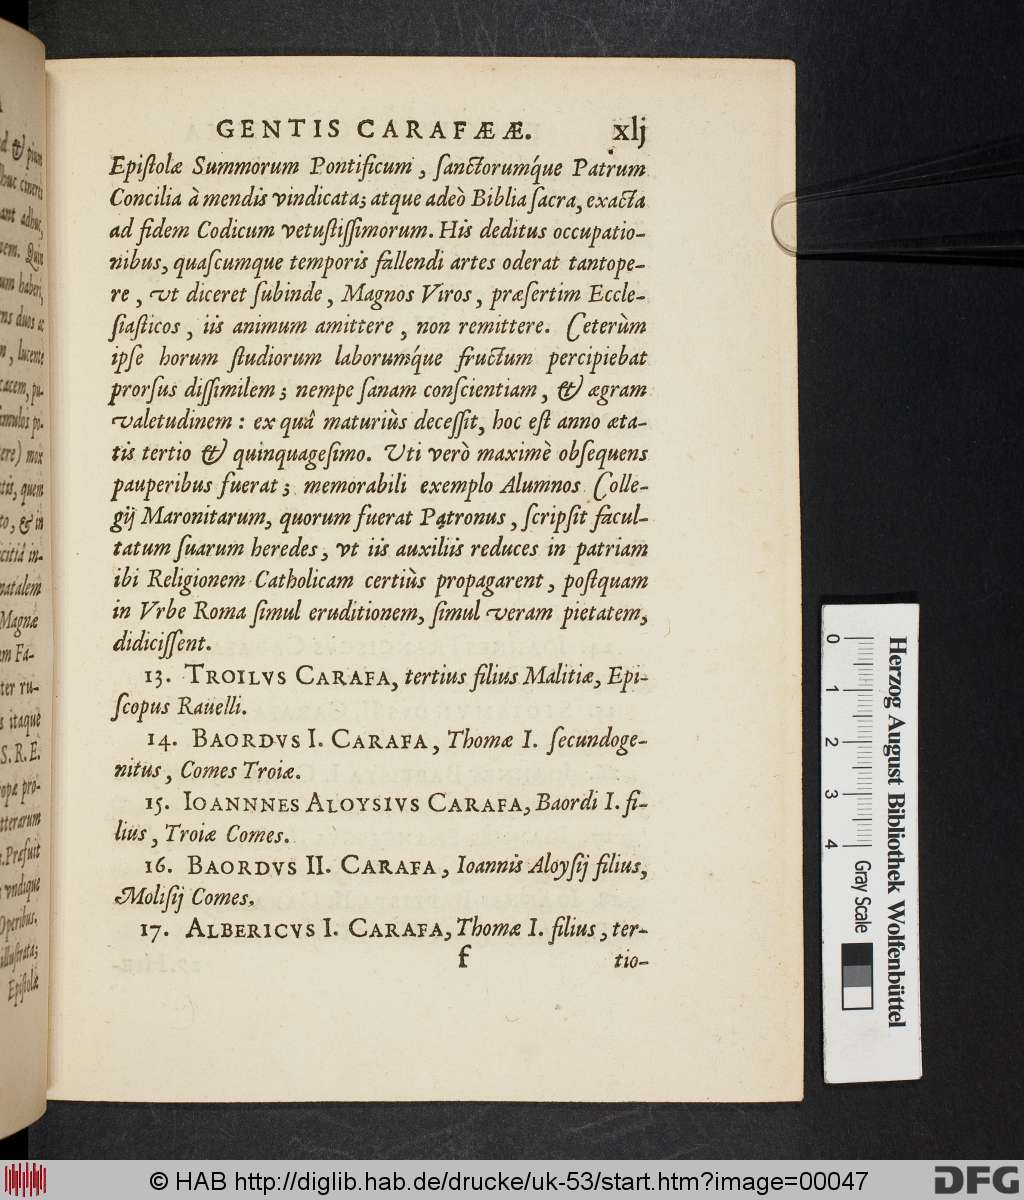 GENTIS CARAFÆÆ. xlj
Epiſtolæ Summorum Pontificum, ſanctorumq́ue Patrum
Concilia à mendis vindicata; atque adeò Biblia ſacra, exacta
ad fidem Codicum vetuſtiſſimorum. His deditus occupatio-
nibus, quaſcumque temporis fallendi artes oderat tantope-
re, vt diceret ſubinde, Magnos Viros, præſertim Eccle-
ſiaſticos, iis animum amittere, non remittere. Ceterùm
ipſe horum ſtudiorum laborumq́ue fructum percipiebat
prorſus diſſimilem; nempe ſanam conſcientiam, & ægram
valetudinem: ex quâ maturiùs deceſſit, hoc eſt anno æta-
tis tertio & quinquageſimo. Uti verò maximè obſequens
pauperibus fuerat; memorabili exemplo Alumnos Colle-
gij Maronitarum, quorum fuerat Patronus, ſcripſit facul-
tatum ſuarum heredes, vt iis auxiliis reduces in patriam
ibi Religionem Catholicam certiùs propagarent, poſtquam
in Vrbe Roma ſimul eruditionem, ſimul veram pietatem,
didiciſſent.
13. TROILVS CARAFA, tertius filius Malitiæ, Epi-
ſcopus Rauelli.
14. BAORDVS I. CARAFA, Thomæ I. ſecundoge-
nitus, Comes Troiæ.
15. IOANNNES ALOYSIVS CARAFA, Baordi I. fi-
lius, Troiæ Comes.
16. BAORDVS II. CARAFA, Ioannis Aloyſij filius,
Moliſij Comes.
17. ALBERICVS I. CARAFA, Thomæ I. filius, ter-
f tio-
Herzog August Bibliothek Wolfenbüttel
0 1 2 3 4 Gray Scale
© HAB http://diglib.hab.de/drucke/uk-53/start.htm?image=00047
DFG